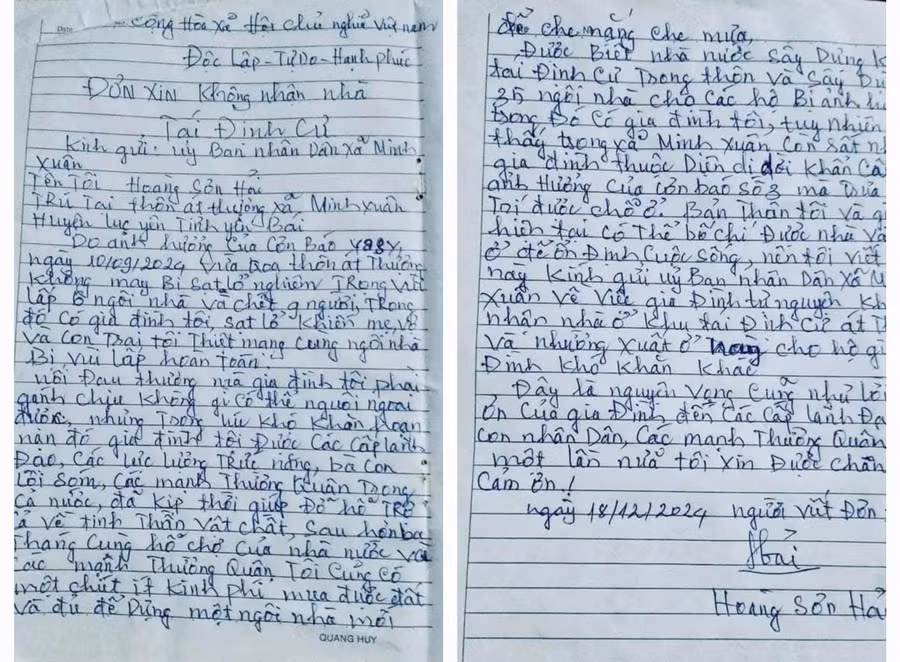 Date
Cộng Hòa xã Hội chủ nghĩa Việt nam
Độc Lập-Tự Do-Hạnh phúc
ĐƠN XIN Không nhận nhà
Tái Định Cư
Kính gửi: uỷ Ban nhân Dân xã Minh
Xuân
Tên Tôi Hoàng Sơn Hải
Trú Tại thôn át thượng xã Minh Xuân
Huyện lục yên Tỉnh yên Bái
Do ảnh hưởng của Cơn Bão yagy,
ngày 10/09/2024 vừa qua thôn át Thượng
Không may Bị sạt lở nghiêm Trọng vùi
lấp 6 ngôi nhà và chết 9 người, Trong
đó có gia đình tôi, sạt lở khiến mẹ, vợ
và con Trai tôi Thiệt mạng cùng ngôi nhà
Bị vùi lấp hoàn toàn.
nỗi Đau thương mà gia đình tôi phải
gánh chịu không gì có thể nguôi ngoai
được, nhưng Trong lúc khó khăn hoạn
nạn đó gia đình tôi Được Các cấp lãnh
Đạo, Các lực lượng Chức năng, bà con
lối xóm, các mạnh Thường Quân Trong
cả nước, đã kịp thời giúp Đỡ hỗ Trợ
cả về tinh Thần vật chất, Sau hơn ba
Tháng Cùng hỗ chợ của nhà nước và
các mạnh Thường Quân Tôi Cũng có
một chút ít kinh phí mua được đất
và đủ để Dựng một ngôi nhà mới
QUANG HUY
để che nắng che mưa,
Được Biết nhà nước sây Dựng k
tái Định Cư Trong thôn và sây Dự
25 ngôi nhà cho các hộ Bị ảnh
trong Đó có gia đình tôi, tuy nhiên
thấy trong xã Minh Xuân còn sất n
gia đình thuộc Diện di dời khẩn cấ
ảnh Hưởng của Cơn bão số 3 mà chưa
Tới được chỗ ở. Bản Thân tôi và g
hiện tại có Thể bố chí Được nhà và
ở để ổn Định cuộc sống, nên tôi viết
này Kính gửi uỷ Ban nhân Dân xã M
Xuân về việc gia Đình tự nguyện kh
nhận nhà ở khu tái Định Cư át T
và nhường xuất ở này cho hộ gi
Đình khó khăn khác
Đây là nguyện vọng Cũng như lời
ơn Của gia Đình đến Các cấp lãnh Đạ
con nhân Dân, Các mạnh Thường Quân
một lần nữa tôi xin Được chân
Cảm ơn!
ngày 18/12/2024 người viết Đơn
Hải
Hoàng Sơn Hả